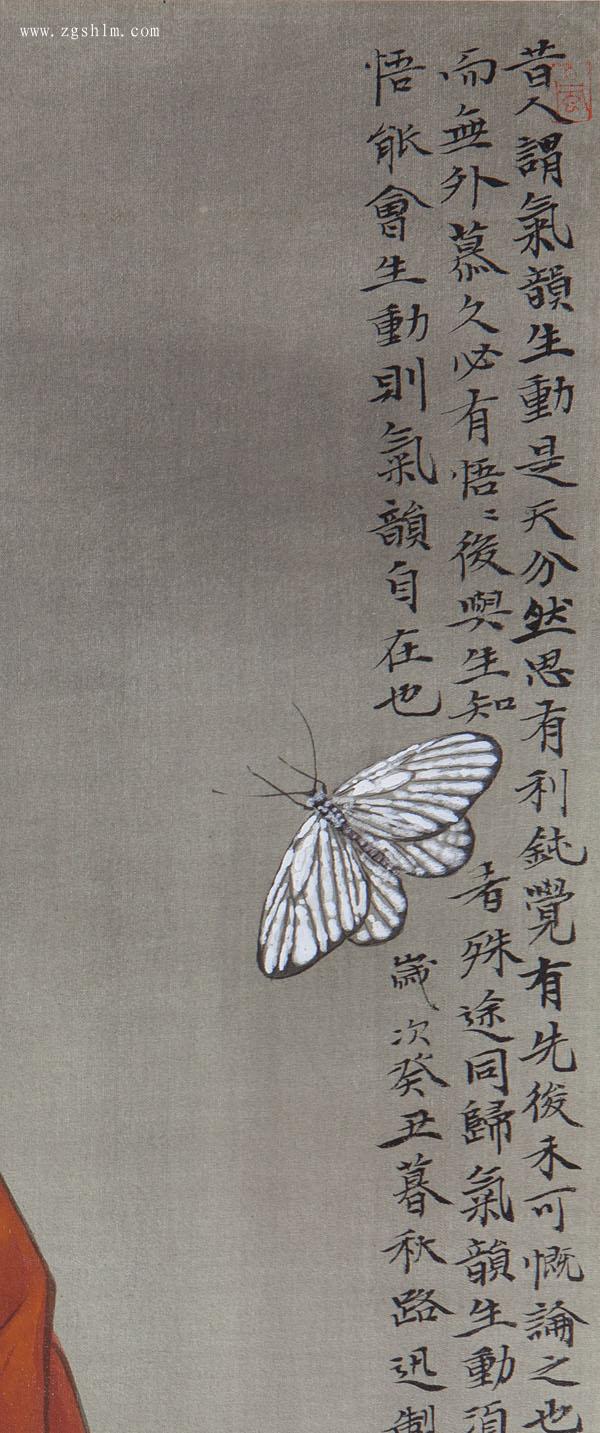 www.zgshlm.com
昔人謂氣韻生動是天分然思有利鈍覺有先後未可慨論之也
而無外慕久必有悟〻後與生知者殊途同歸氣韻生動須
悟能會生動則氣韻自在也
歲次癸丑暮秋路迅製